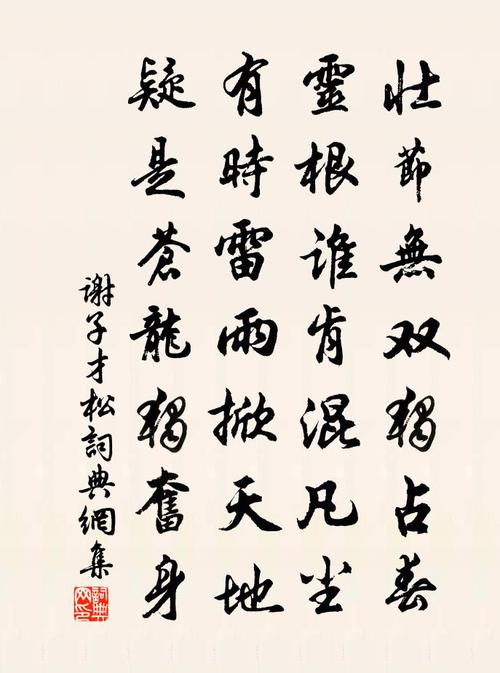 壮節無双獨占春
靈根谁肯混凡尘
有時雷雨掀天地
疑是蒼龍獨奮身
谢子才松詞典網集
詞典网印